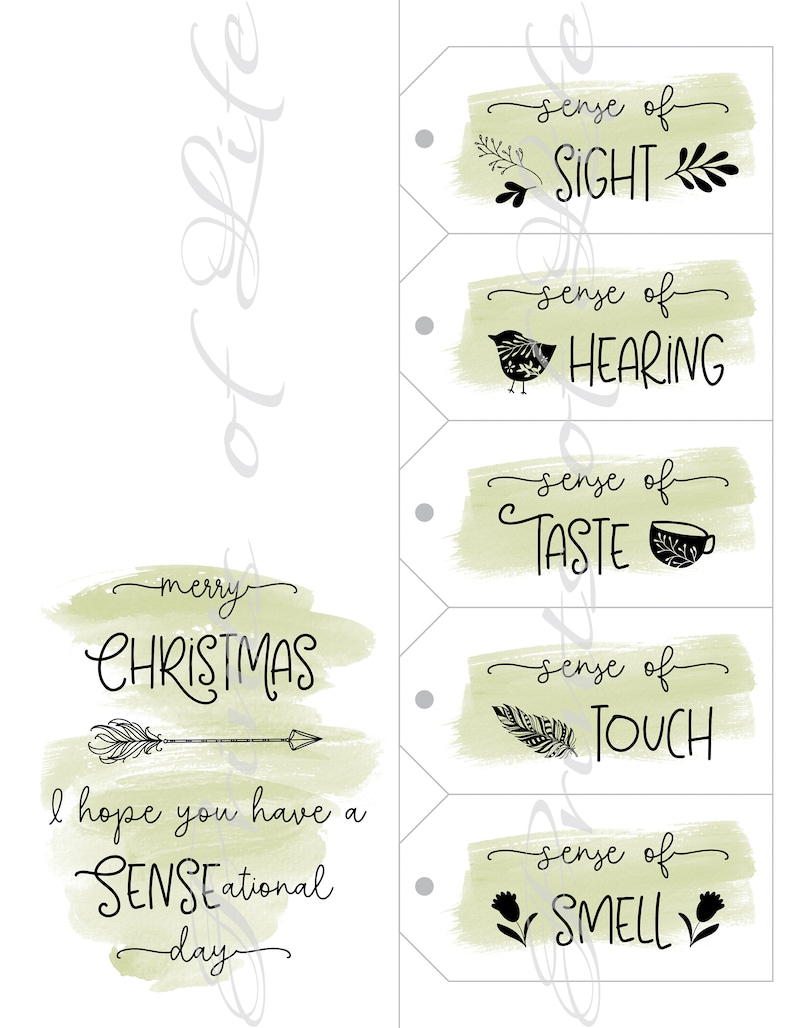 merry
CHRiSTMAS
I hope you have a
SENSEational
day
sense of
SiGHT
sense of
HEARiNG
sense of
TASTE
sense of
TOUCH
sense of
SMELL
Prints of Life
Prints of Life